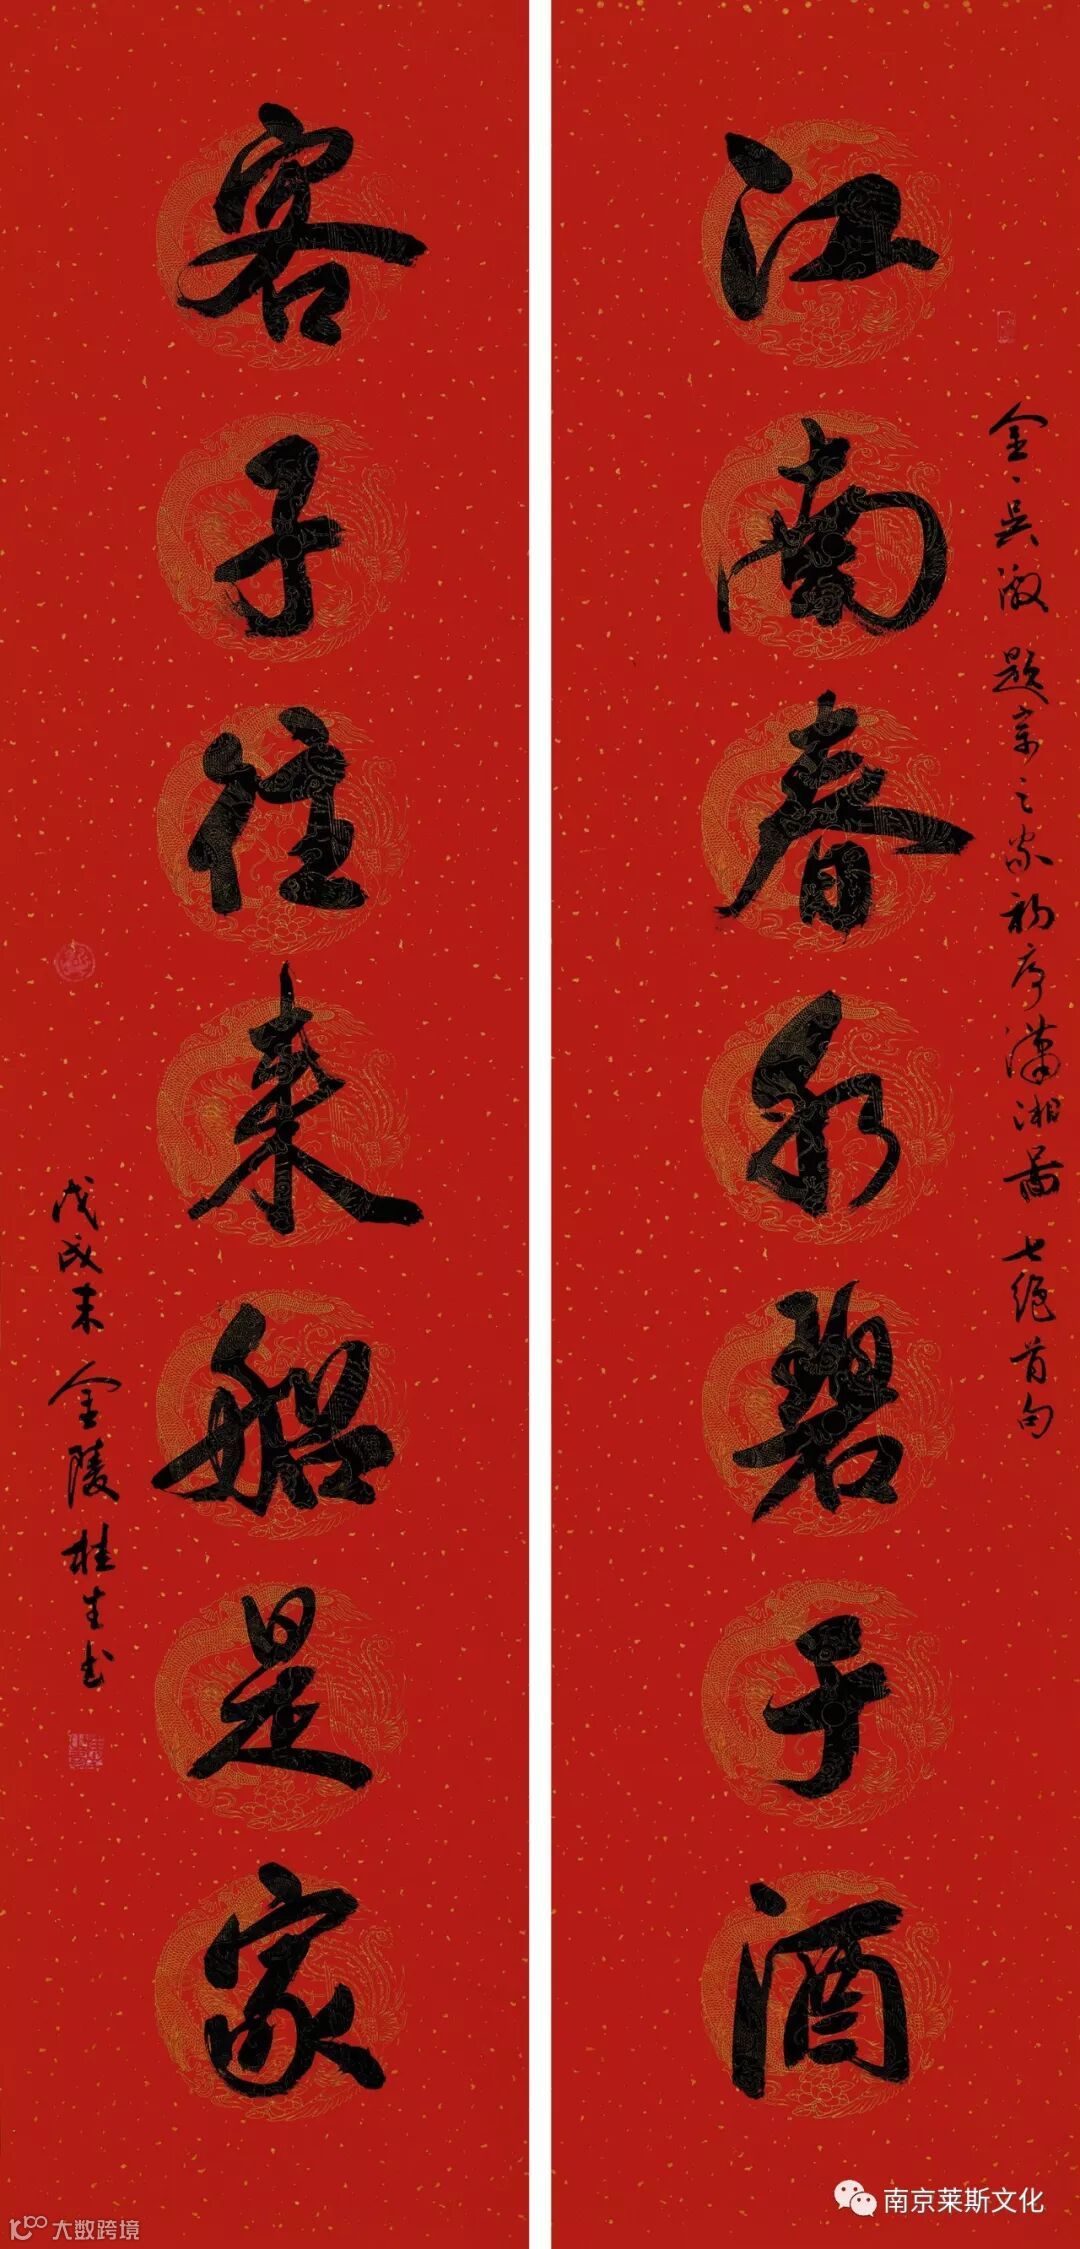 江南春水碧于酒
金、吴激 题宗之家初序潇湘图 七绝首句
客子往来船是家
戊戌末 金陵桂生书
南京莱斯文化
大数跨境